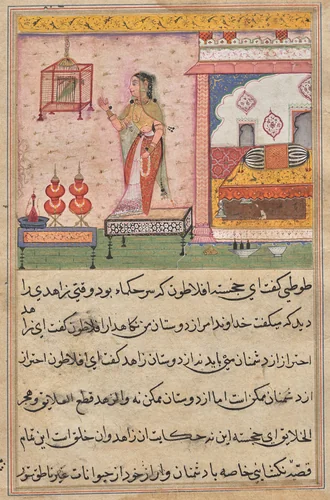 طوطی گفت ای خجسته افلاطون که سر حکماء بود وقتی زاهدی را
دید که میگفت خداوندا مرا از دوستان من نگاهدار افلاطون گفت ای زاهد
احتراز از دشمنان می باید نه از دوستان زاهد گفت ای افلاطون احتراز
از دشمنان ممکن است اما از دوستان ممکن نه والزهد قطع العلایق و هجر
الخلایق ای خجسته این نه حکایت آن زاهد وان خلق است این مقام
قصه نکشابی خاصه با دشمنان و از خود از حیوانات غیر ناطق تو ز